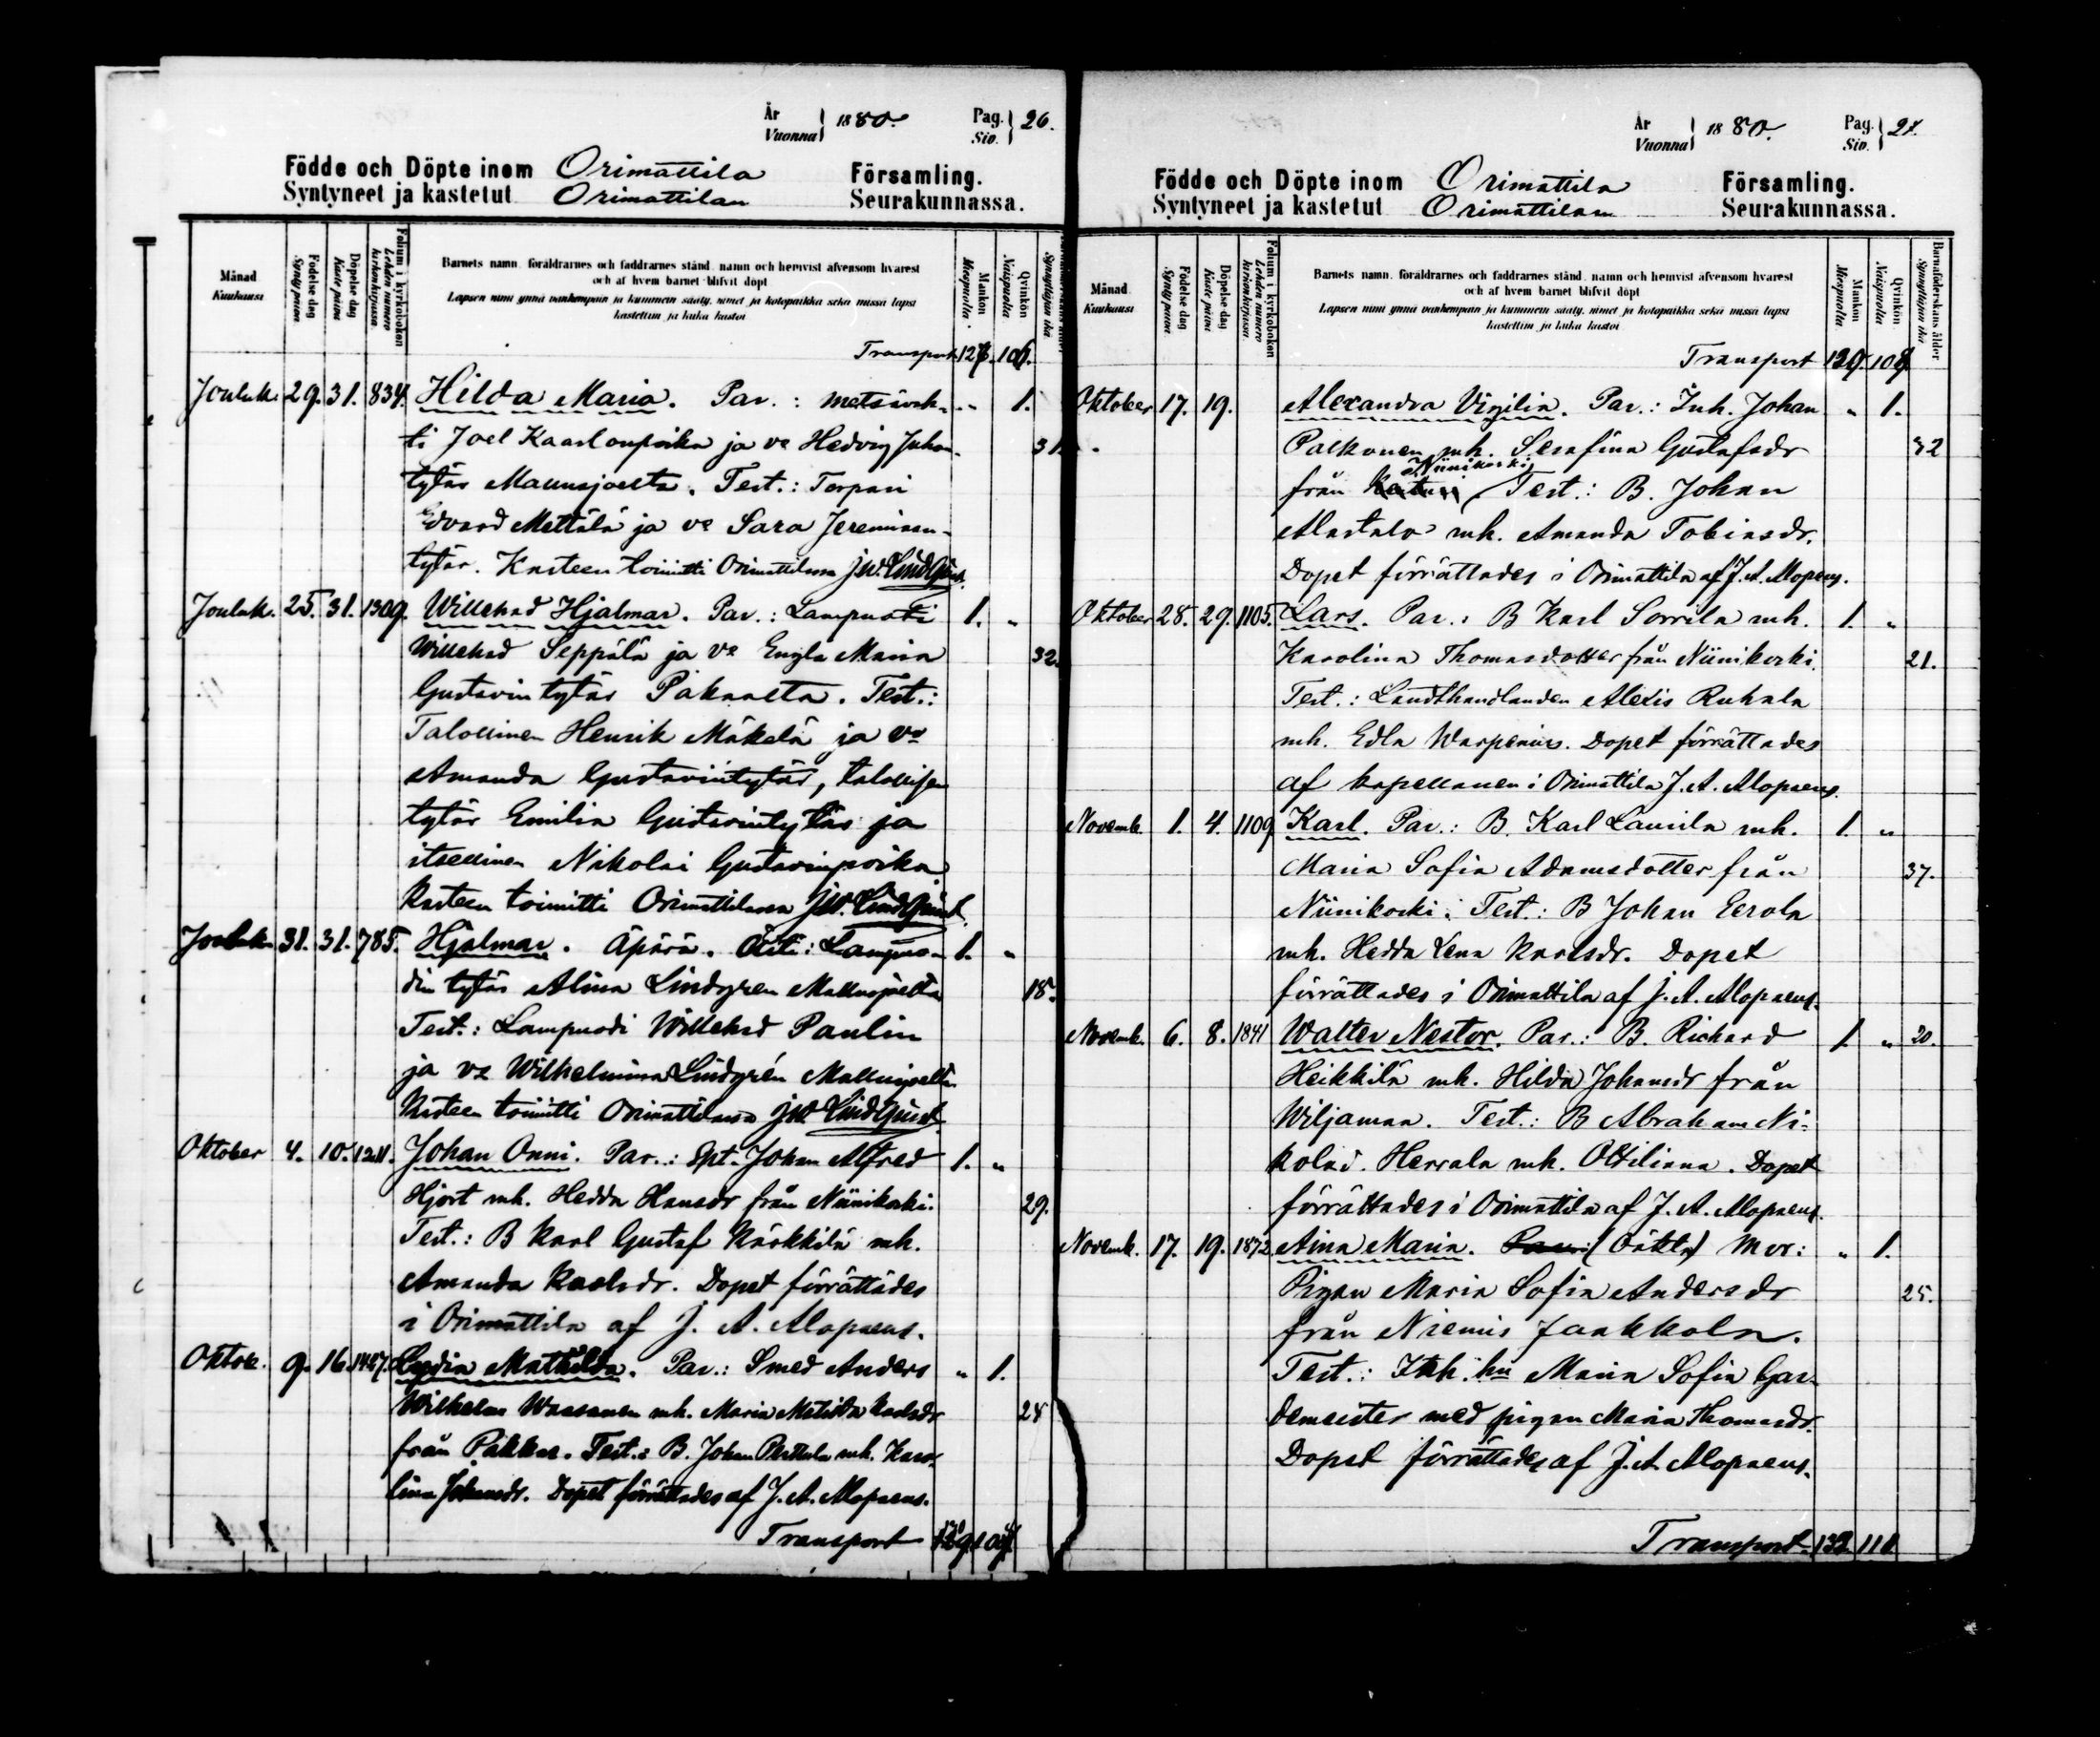 År
Vuonna } 1880. Pag.
Siv. } 26.
Födde och Döpte inom Orimattila Församling.
Syntyneet ja kastetut Orimattilan Seurakunnassa.
Månad Kuukausi
Födelse dag Synty päivä
Döpelse dag Kaste päivä
Folium i kyrkoboken Lehden numero kirkonkirjassa
Barnets namn, föräldrarnes och faddrarnes stånd, namn och hemvist äfvensom hvarest
och af hvem barnet blifvit döpt
Lapsen nimi ynnä vanhempain ja kummein sääty, nimet ja kotopaikka sekä missä lapsi
kastettiin ja kuka kastoi
Mankön Miespuolia
Qvinkön Naispuolia
Transport
Jouluk. 29. 31. 834. Hilda Maria. Par.: metsävah- " 1.
ti Joel Kaarlonpoika ja vo Hedvig Juhon- 31
tytär Mallusjoelta. Test.: Torpari
Edvard Mettälä ja vo Sara Jeremiaan-
tytär. Kasteen toimitti Orimattilassa JW. Lindqvist.
Jouluk. 25. 31. 1309. Willehad Hjalmar. Par.: Lampuoti 1. "
Willehad Seppälä ja vo Engla Maria 32.
Gustavintytär Pakaalta. Test.:
Talollinen Henrik Mäkelä ja vo
Amanda Gustavintytär, talollisen
tytär Emilia Gustavintytär ja
itsellinen Nikolai Gustavinpoika
Kasteen toimitti Orimattilassa JW. Lindqvist.
Jouluk. 31. 31. 785. Hjalmar. Äpärä. Äiti: Lampuo- 1. "
din tytär Alina Lindgren Mallusjoelta 18.
Test.: Lampuodi Willehad Paulin
ja vo Wilhelmina Lindgrén Mallusjoelta
Kasteen toimitti Orimattilassa JW. Lindqvist.
Oktober 4. 10. 1211. Johan Onni. Par.: Spt. Johan Alfred 1. "
Hjort mh. Hedda Hansdr från Niinikoski. 29.
Test.: B Karl Gustaf Kärkkilä mh.
Amanda Karlsdr. Dopet förrättades
i Orimattila af J. A. Alopaeus.
Oktob. 9. 16. 1467. Lydia Mathilda. Par.: Smed Anders " 1.
Wilhelm Wassanen mh. Maria Matilda Karlsdr 28
från Pakkas. Test.: B. Johan mh. Karo-
lina Johansdr. Dopet förrättades af J. A. Alopaeus.
Transport
År
Vuonna } 1880. Pag.
Siv. } 27.
Födde och Döpte inom Orimattila Församling.
Syntyneet ja kastetut Orimattilan Seurakunnassa.
Månad Kuukausi
Födelse dag Synty päivä
Döpelse dag Kaste päivä
Folium i kyrkoboken Lehden numero kirkonkirjassa
Barnets namn, föräldrarnes och faddrarnes stånd, namn och hemvist äfvensom hvarest
och af hvem barnet blifvit döpt
Lapsen nimi ynnä vanhempain ja kummein sääty, nimet ja kotopaikka sekä missä lapsi
kastettiin ja kuka kastoi
Mankön Miespuolia
Qvinkön Naispuolia
Barnaföderskans ålder Synnyttäjän ikä
Transport
Oktober 17. 19. Alexandra Virgilia. Par.: Inh. Johan " 1.
Palkonen mh. Serafina Gustafsdr 32
Niinikoski
från Test.: B. Johan
Alastalo mh. Amanda Tobiasdr.
Dopet förrättades i Orimattila af J. A. Alopaeus.
Oktober 28. 29. 1105. Lars. Par.: B Karl Sorrila mh. 1. "
Karolina Thomasdotter från Niinikoski. 21.
Test.: Landthandlanden Alexis Ruhala
mh. Edla Warpenius. Dopet förrättades
af kapellanen i Orimattila J. A. Alopaeus.
Novemb. 1. 4. 1109 Karl. Par.: B. Karl Laurila mh. 1. "
Maria Sofia Adamsdotter från 37.
Niinikoski. Test.: B Johan Eerola
mh. Hedda Lena Karlsdr. Dopet
förrättades i Orimattila af J. A. Alopaeus.
Novemb. 6. 8. 1841 Walter Nestor. Par.: B. Richard 1. " 20.
Heikkilä mh. Hilda Johansdr från
Wiljamaa. Test.: B Abraham Ni-
kolai Herrala mh. Ottiliana. Dopet
förrättades i Orimattila af J. A. Alopaeus.
Novemb. 17. 19. 1872 Aina Maria. (Oäkta) Mor: " 1.
Pigan Maria Sofia Andersdr 25.
från Niemis Jaakkola.
Test.: Inh. hu Maria Sofia Gar-
demeister med pigan Maria Thomasdr.
Dopet förrättades af J. A. Alopaeus.
Transport 132 110